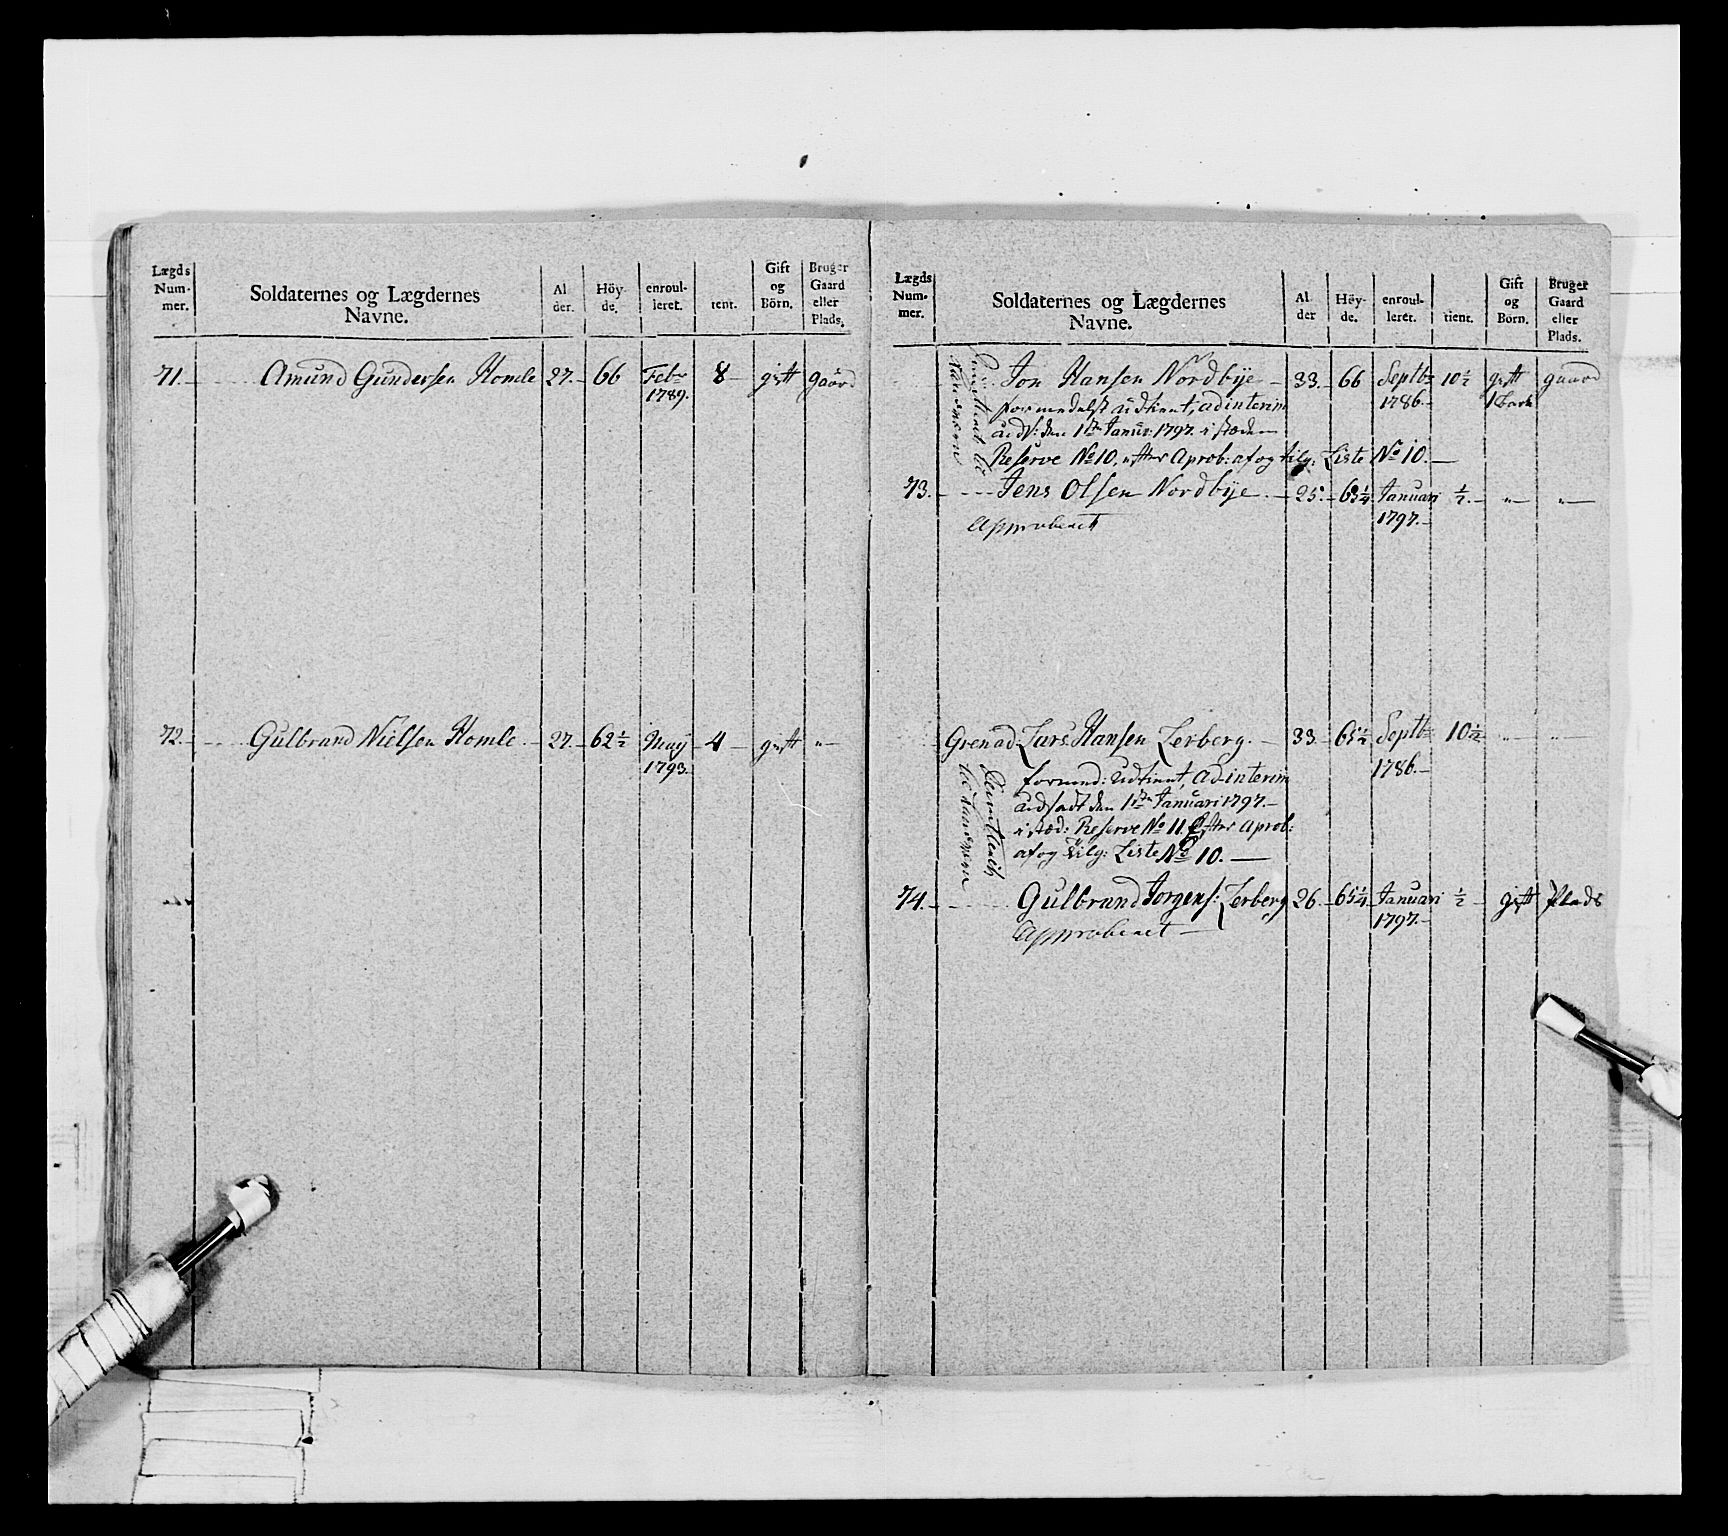 Lægds Num- mer.
Soldaternes og Lægdernes Navne.
Al der.
Höy- de.
enroul- leret.
tient.
Gift og Börn.
Bruger Gaard eller Plads.
71. Amund Gundersen Homle 27. 66 Febr 8 gift gaard
1789.
72. Gulbrand Nielsen Homle. 27. 62½ May 4 gift "
1793.
Lægds Num- mer.
Soldaternes og Lægdernes Navne.
Al der
Höy- de.
enroul- leret.
tient.
Gift og Börn.
Bruger Gaard eller Plads.
Jon Hansen Nordbye 33. 66 Septb 10½ gift gaard
formedelst udtient, ad interim 1786. 1 Barn
uds: den 1te Janur: 1797. i stæden
Reserve No 10, efter Aprob: af og tilg: Liste No 10.
73. Jens Olsen Nordbye. 25. 63¼ Januari ½. " "
Approberet 1797.
Grenad Lars Hansen Lerberg. 33. 65½ Septb 10½ " "
formed: udtient, ad interim 1786.
udsadt den 1te Januari 1797.
i stæd: Reserve No 11. Efter Aprob:
af og tilg: Liste No 10.
til Landværn
74. Gulbrand Jorgens: Lerberg 26. 65¼ Januari ½ gift Plads
Approberet 1797.